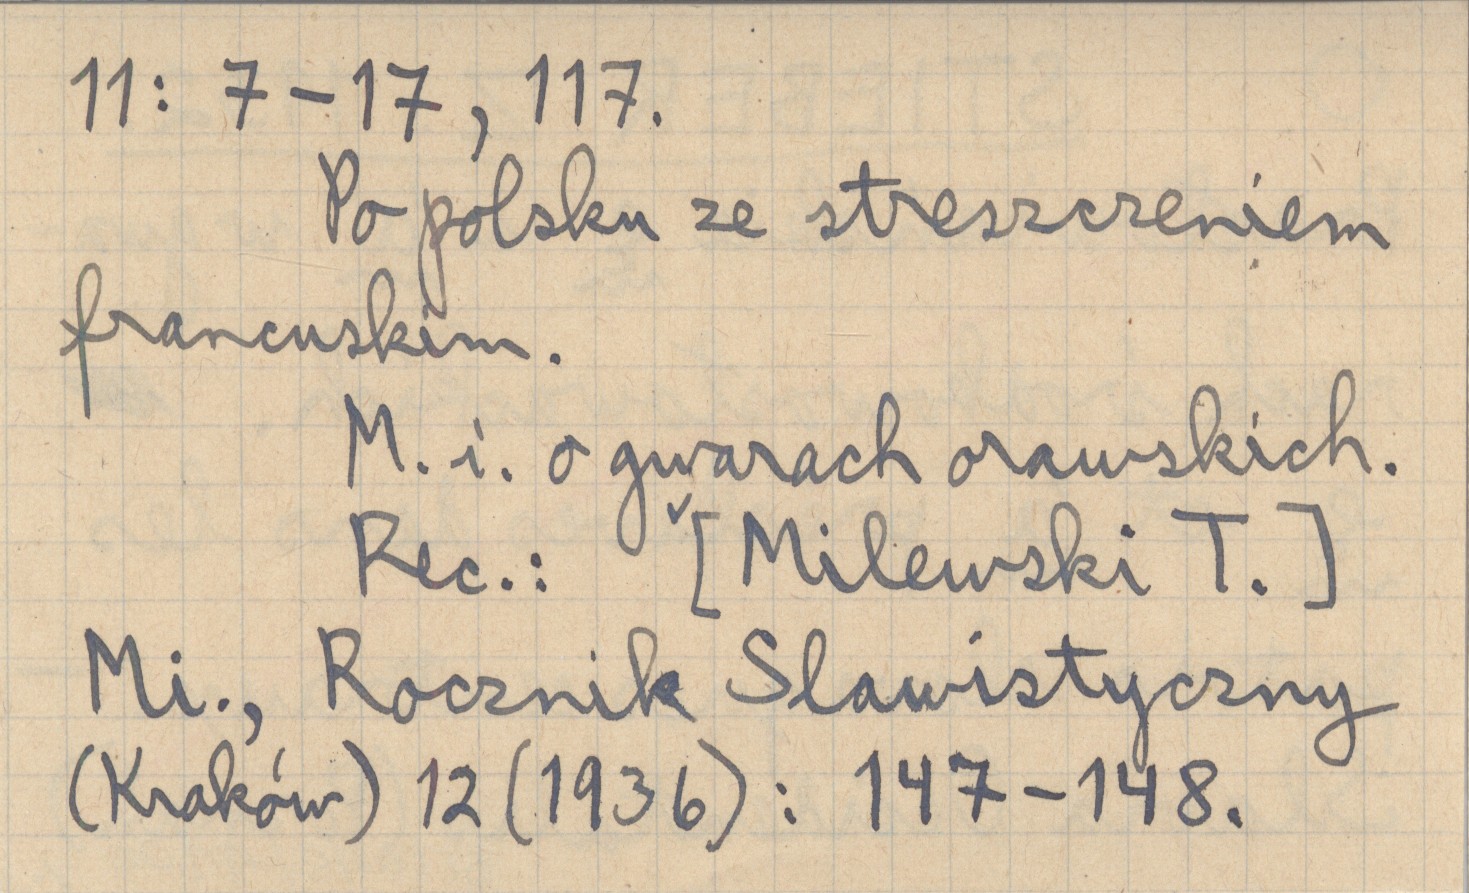 11: 7-17, 117.
Po polsku ze streszczeniem
francuskim.
M. i. o gwarach orawskich.
Rec.: [Milewski T.]
Mi., Rocznik Slawistyczny
(Kraków) 12 (1936): 147-148.